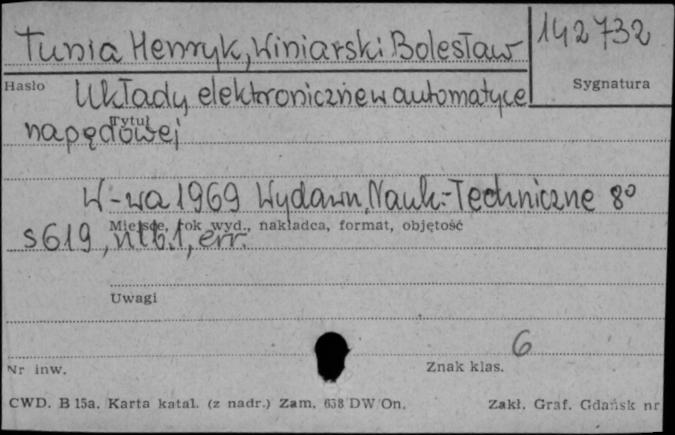 Tunia Henryk, Winiarski Bolesław
142732
Hasło
Sygnatura
Układy elektroniczne w automatyce
Tytuł
napędowej
W-wa 1969 Wydawn. Nauk.-Techniczne 8°
Miejsce, rok wyd., nakładca, format, objętość
s 619, nlb. 1, err.
Uwagi
6
Nr inw.
Znak klas.
CWD. B 15a. Karta katal. (z nadr.) Zam. 638 DW/On.
Zakł. Graf. Gdańsk nr